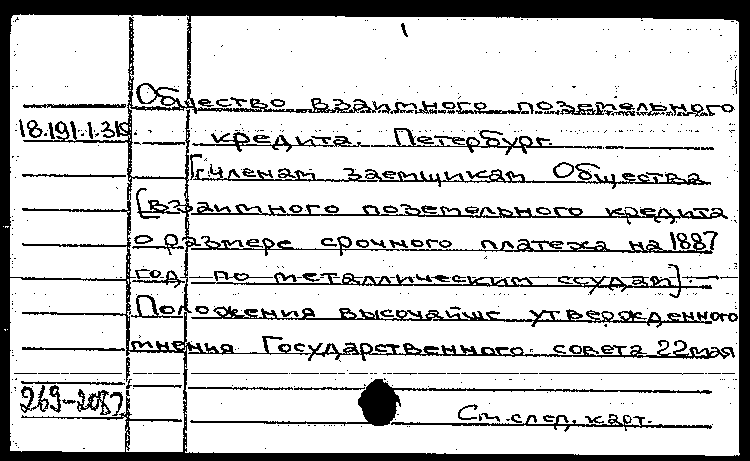 1
Общество взаимного поземельного
18.191.1.319.
кредита. Петербург.
[Г.членам заемщикам Общества
[взаимного поземельного кредита
о размере срочного платежа на 1887
год по металлическим ссудам].—
Положения высочайше утвержденного
мнения Государственного совета 22 мая
269-2087
См. след. карт.